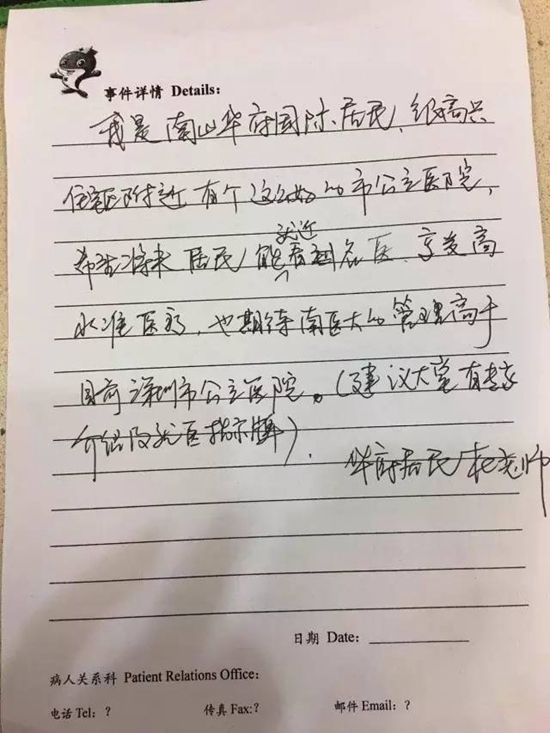 事件详情 Details:
我是南山华府国际居民,很高兴
住宅区附近有个这么好的市公立医院,
就近
希望将来居民能看到名医、享受高
水准医疗,也期待南医大的管理高于
目前深圳市公立医院。(建议大堂有专家
介绍及就医指示牌)。
华府居民 杜老师
日期 Date:
病人关系科 Patient Relations Office:
电话 Tel: ? 传真 Fax:? 邮件 Email: ?